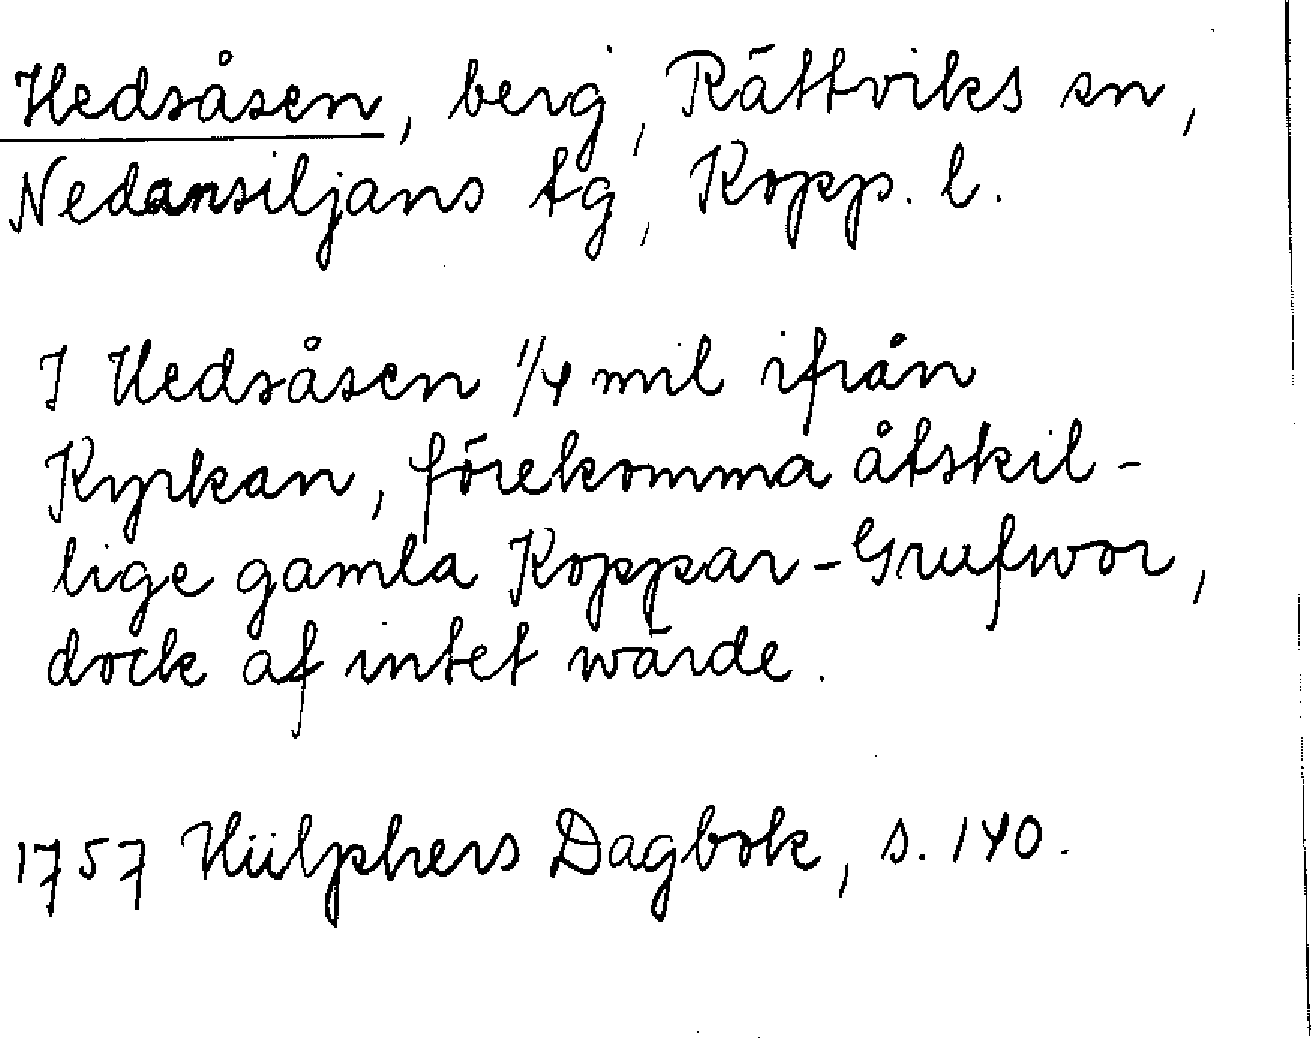 Hedsåsen, berg, Rättviks sn,
Nedansiljans tg, Kopp. l.
I Hedsåsen 1/4 mil ifrån
Kyrkan, förekomma åtskil-
lige gamla Koppar-Grufwor,
dock af intet wärde.
1757 Hülphers Dagbok, s. 140.